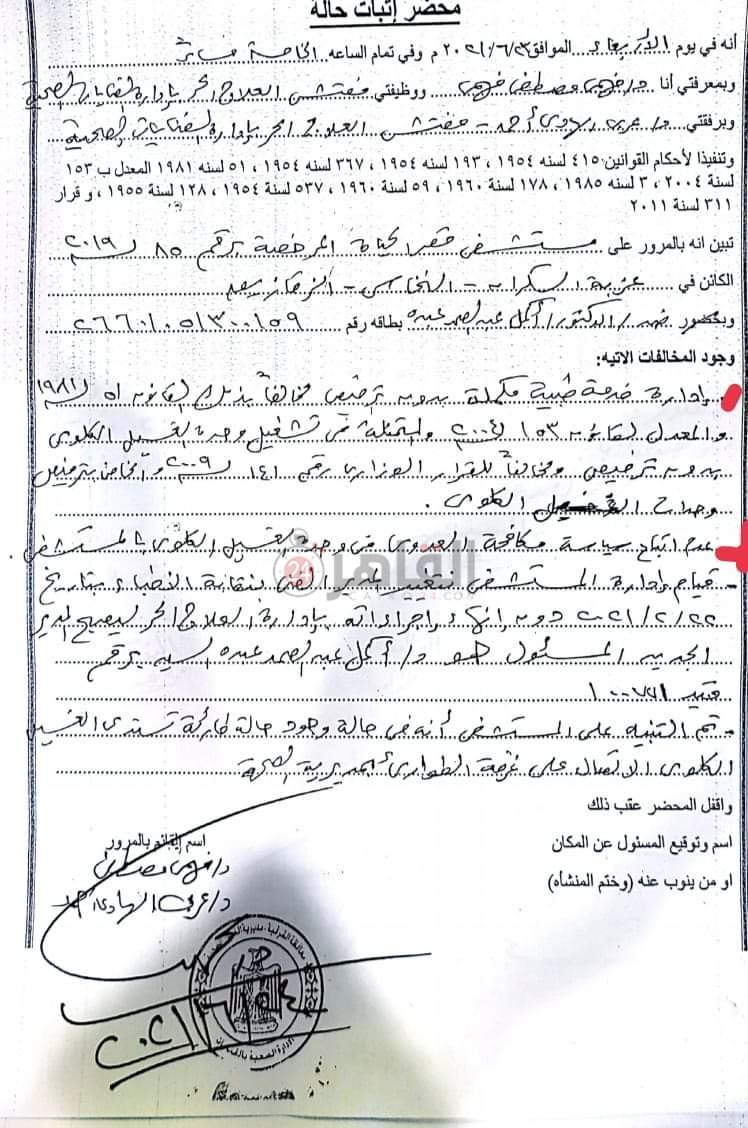 محضر إثبات حالة
أنه في يوم الأربعاء الموافق ٢٠٢١/٦/٢٣ م وفي تمام الساعه الخامسة مساءً
وبمعرفتي أنا د/فهمى مصطفى فهمى ووظيفتي مفتش العلاج الحر بإدارة القنايات الصحية
وبرفقتي د/عربى الهادى أحمد - مفتش العلاج الحر بإدارة القنايات الصحية
وتنفيذا لأحكام القوانين ٤١٥ لسنه ١٩٥٤ ، ١٩٣ لسنه ١٩٥٤ ، ٣٦٧ لسنه ١٩٥٤ ، ٥١ لسنه ١٩٨١ المعدل ب ١٥٣
لسنة ٢٠٠٤ ، ٣ لسنه ١٩٨٥ ، ١٧٨ لسنة ١٩٦٠ ، ٥٩ لسنة ١٩٦٠ ، ٥٣٧ لسنة ١٩٥٤ ، ١٢٨ لسنة ١٩٥٥ ، و قرار
٣١١ لسنة ٢٠١١
تبين انه بالمرور على مستشفى قصر الحياة المرخصة برقم ٨٥ لسنة ٢٠١٩
الكائن في عزبة - النحاس - الزقازيق
وبحضور الدكتور/ أكمل عبد الصمد عبده بطاقه رقم ٢٦٦٠١٠٥١٣٠٠١٥٩
وجود المخالفات الاتيه:
- إدارة خدمة طبية مكملة بدون ترخيص مخالفاً بذلك القانون ٥١ لسنة ١٩٨١
والمعدل لقانون ١٥٣ لسنة ٢٠٠٤ والمتمثلة فى تشغيل وحدة الغسيل الكلوى
بدون ترخيص ومخالفاً للقرار الوزارى رقم ١٤١ لسنة ٢٠٠٩ والخاص بترخيص
وحدات الغسيل الكلوى .
- عدم اتباع سياسة مكافحة العدوى فى وحدة الغسيل الكلوى بالمستشفى .
- قيام إدارة المستشفى بتغيير المدير الفنى بنقابة الأطباء بتاريخ
٢٠٢١/٢/٢٢ دون إنهاء إجراءاته بإدارة العلاج الحر ليصبح المدير
الجديد المسئول هو د/ أكمل عبد الصمد عبده السيد برقم
قيد ١٠٠٧٧١
- تم التنبيه على المستشفى أنه فى حالة وجود حالة طارئة تستدعى الغسيل
الكلوى الاتصال على غرفة الطوارئ بمديرية الصحة
واقفل المحضر عقب ذلك
اسم وتوقيع المسئول عن المكان
او من ينوب عنه (وختم المنشأه)
اسم القائم بالمرور
د/فهمى مصطفى
د/عربى الهادى أحمد
القاهرة 24